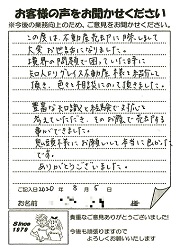 お客様の声をお聞かせください
※今後の業務向上のため、ご意見をお聞かせください。
この度は、不動産売却に際しまして
大変お世話になりました。
境界の問題で困っていた時に
知人よりクレイス不動産様を紹介して
頂き、色々と相談にのって頂きました。
豊富な知識と経験で対応に
あたっていただき、そのお蔭で売却する
事ができました。
見山様にお願いして本当に良かった
です。
ありがとうございました。
ご記入日2020年8月5日
お名前 様
Since
1979
貴重なご意見ありがとうございました!
今後も頑張りますので
よろしくお願いいたします